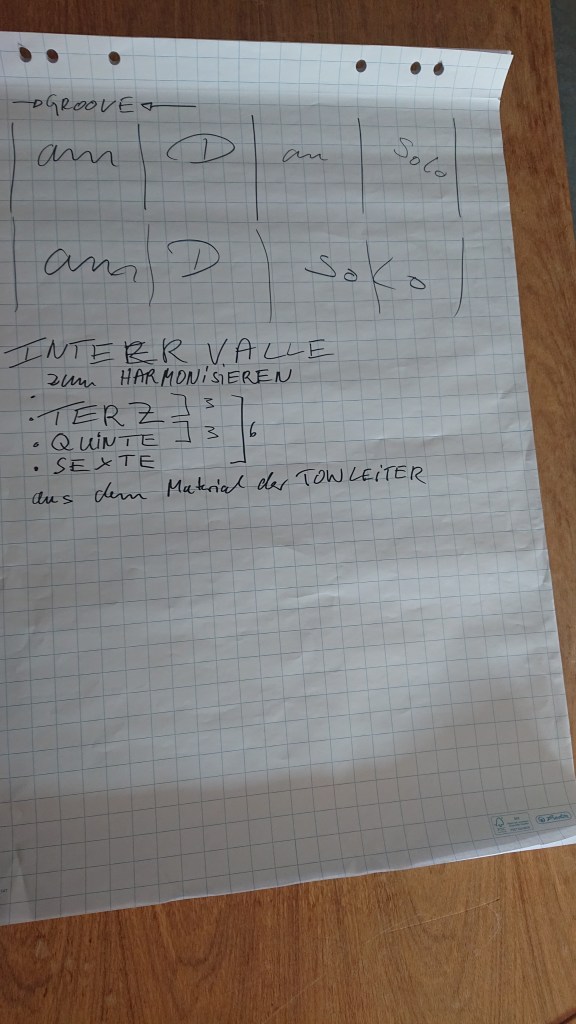 →GROOVE←
| am | D | am | SOLO |
| am | D | SOLO |
INTERVALLE
zum HARMONISIEREN
• TERZ ] 3
• QUINTE ] 3 ] 6
• SEXTE
aus dem Material der TONLEITER